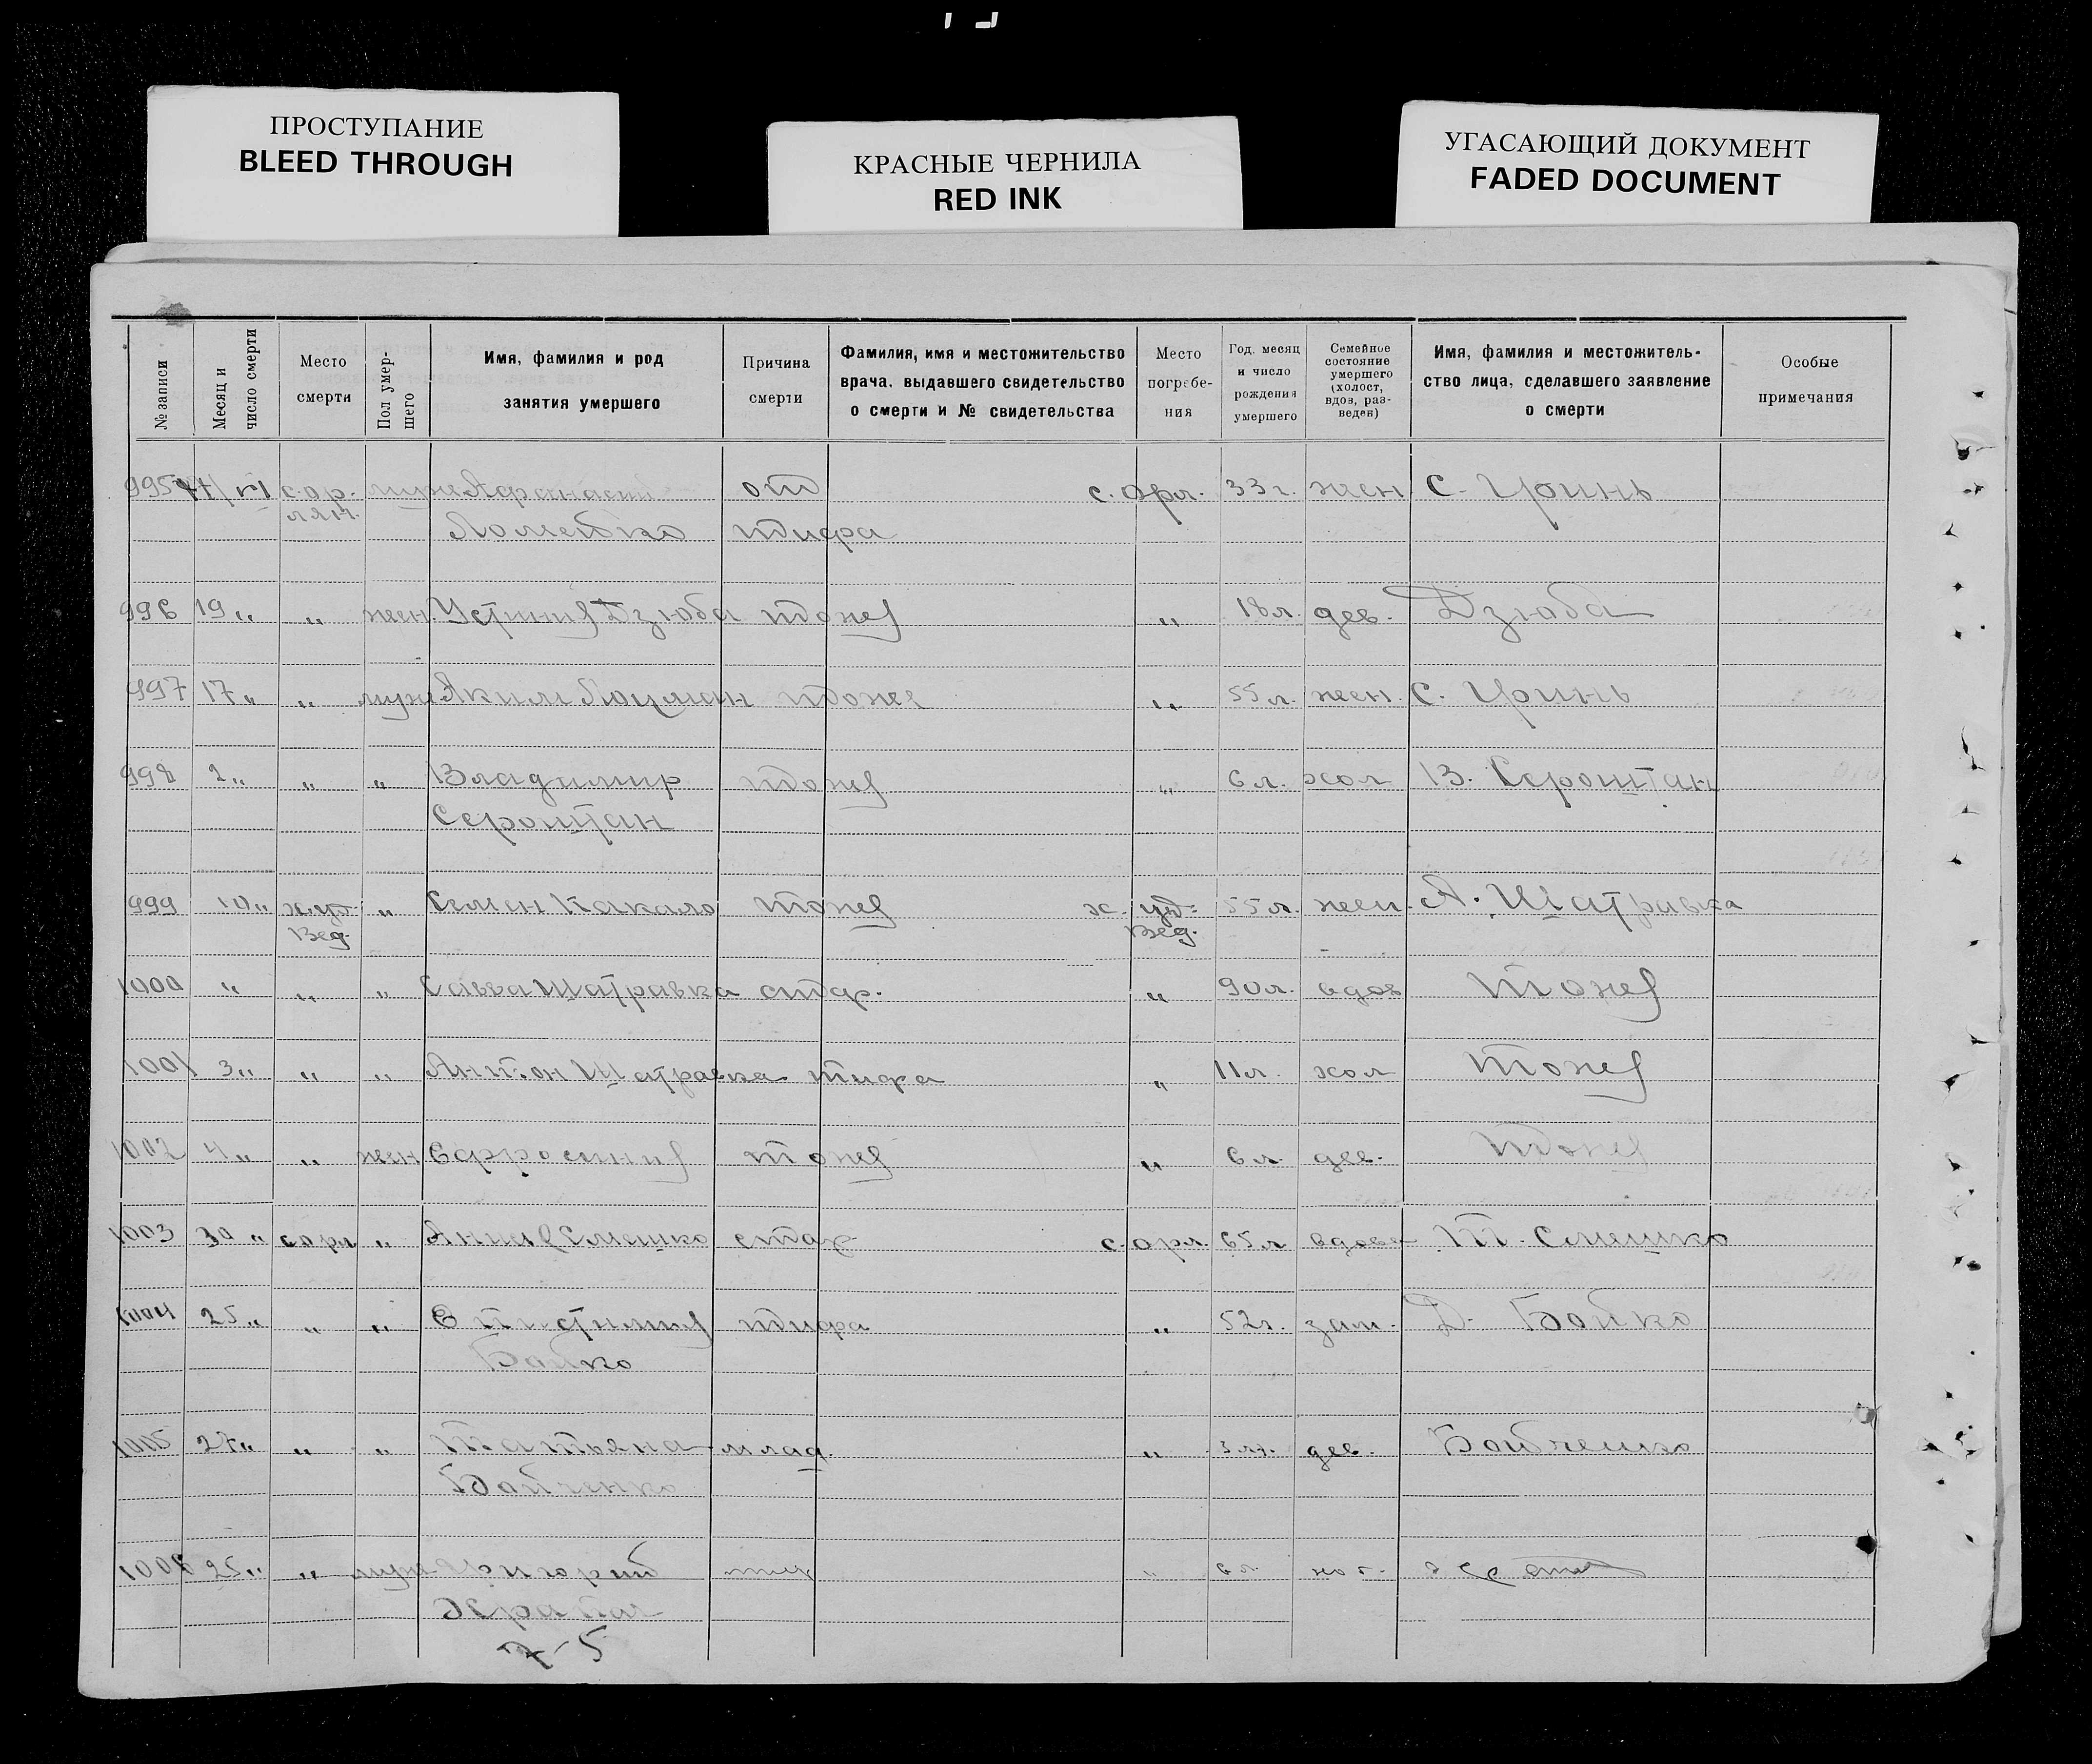 ПРОСТУПАНИЕ
BLEED THROUGH
КРАСНЫЕ ЧЕРНИЛА
RED INK
УГАСАЮЩИЙ ДОКУМЕНТ
FADED DOCUMENT
№ записи
Месяц и
число смерти
Место
смерти
Пол умер-
шего
Имя, фамилия и род
занятия умершего
Причина
смерти
Фамилия, имя и местожительство
врача, выдавшего свидетельство
о смерти и № свидетельства
Место
погребе-
ния
Год, месяц
и число
рождения
умершего
Семейное
состояние
умершего
(холост,
вдов, раз-
веден)
Имя, фамилия и местожитель-
ство лица, сделавшего заявление
о смерти
Особые
примечания
995 с. ор. муж Афанасий от с. орл. 33 г. жен С. Гринь
лян. тифа
996 19 „ „ жен. Устиния Дзюба тоже „ 18 л. дев. Дзюба
997 17 „ „ муж Яким тоже „ 55 л. жен. С. Гринь
998 2 „ „ „ Владимир тоже „ 6 л. хол В. Сероштан
Сероштан
999 10 „ „ Семен Какало тоже х. 55 л. жен. А. Шатравка
1000 „ „ „ Савва Шатравка стар. „ 90 л. вдов Тоже
1001 3 „ „ „ Антон Шатравка тифа „ 11 л. хол Тоже
1002 4 „ „ жен Ефросиния тоже „ 6 л. дев. Тоже
1003 30 „ с орл „ Анна Смешко стар с. орл. 65 л вдова Т. Смешко
1004 25 „ „ „ тифа „ 52 г. зам. Д. Бойко
Бойко
1005 27 „ „ „ Татьяна млад. „ 3 л. дев. Бойченко
Бойченко
1006 25 „ „ муж Григорий „ 6 л.